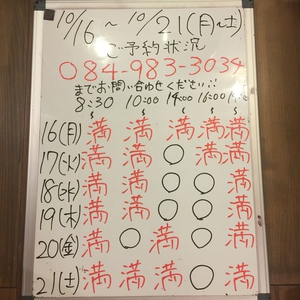 10/16~10/21(月~土)
ご予約状況
084-983-3034
までお問い合わせください!!
8:30 10:00 14:00 16:00
16(月) 満 満 満 満 満
17(火) 満 満 ○ 満 満
18(水) 満 満 ○ ○ 満
19(木) 満 満 ○ ○ 満
20(金) 満 ○ 満 ○ 満
21(土) 満 満 満 ○ 満